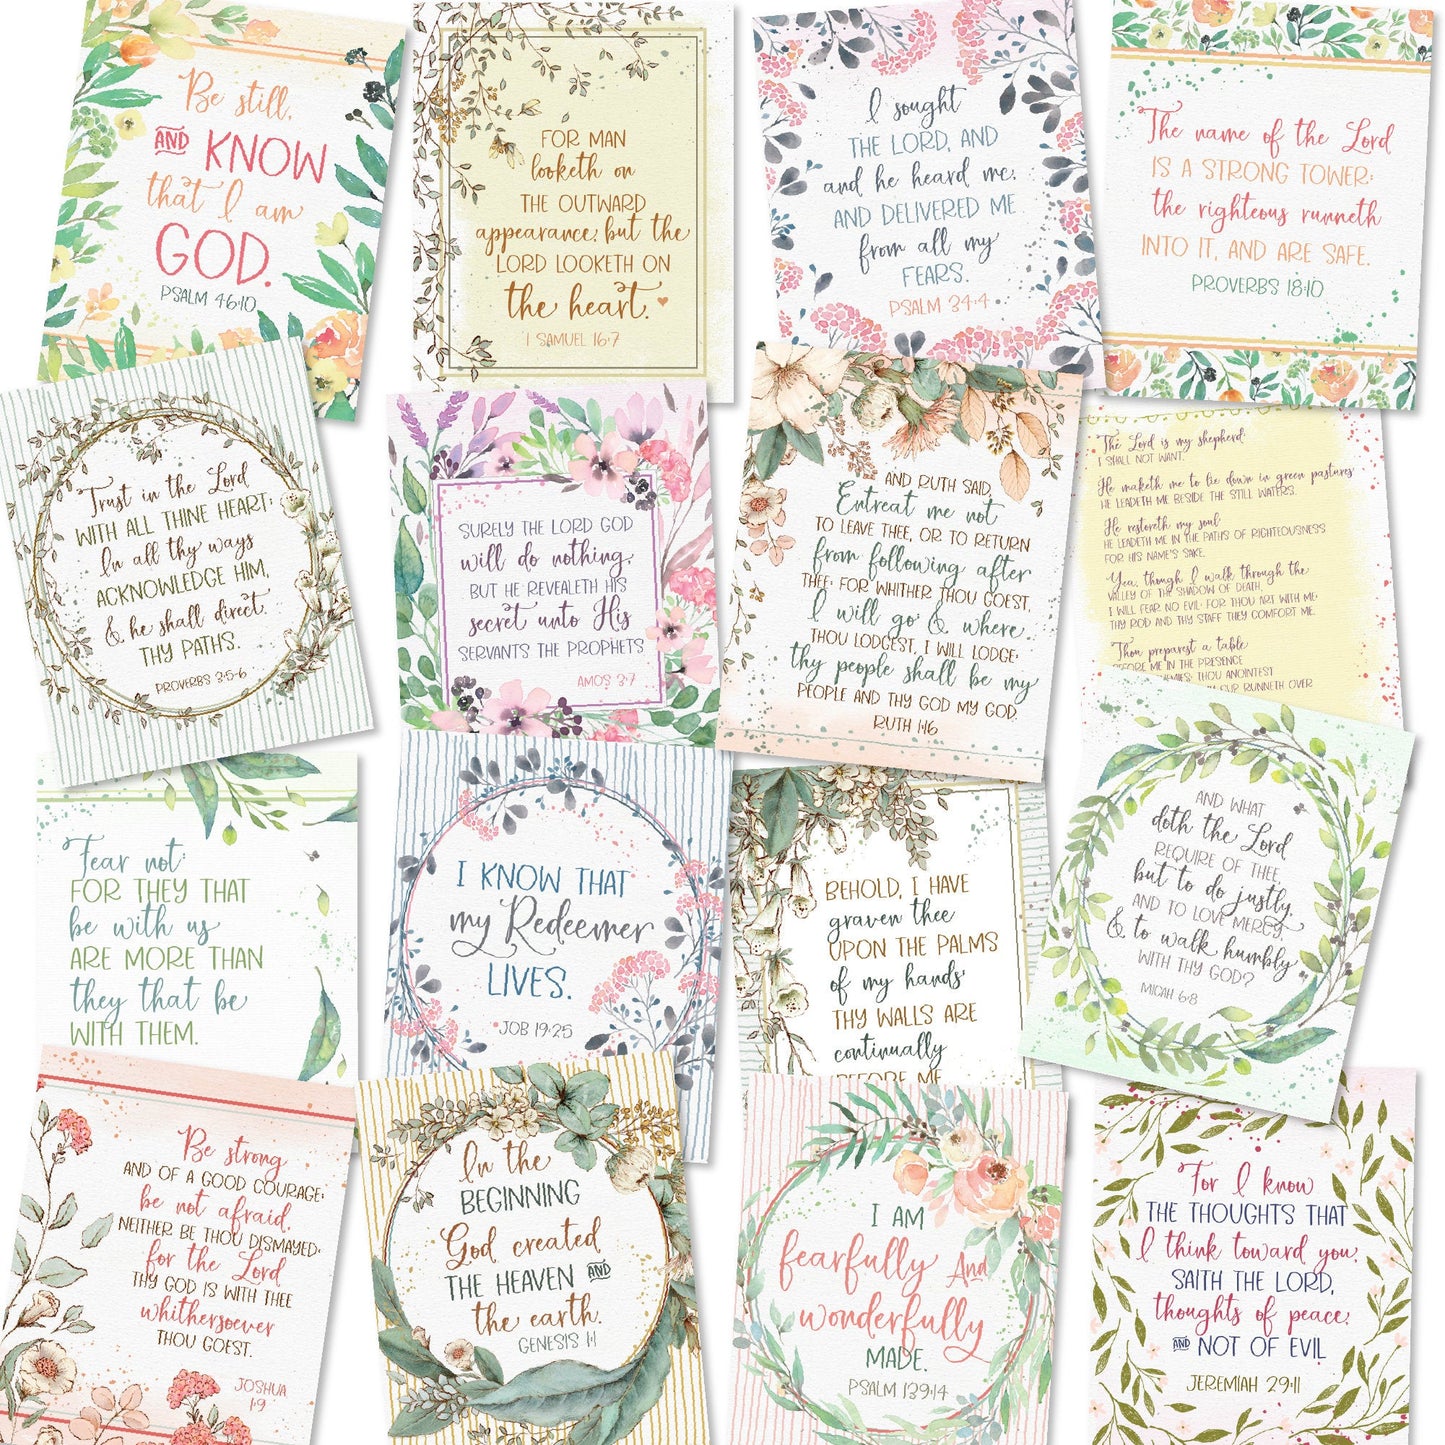 Be still,
AND KNOW
that I am
GOD.
PSALM 46:10
FOR MAN
looketh on
THE OUTWARD
appearance; but the
LORD LOOKETH ON
the heart.
1 SAMUEL 16:7
I sought
THE LORD, AND
and he heard me,
AND DELIVERED ME
from all my
FEARS.
PSALM 34:4
The name of the Lord
IS A STRONG TOWER:
the righteous runneth
INTO IT, AND ARE SAFE.
PROVERBS 18:10
Trust in the Lord
WITH ALL THINE HEART;
In all thy ways
ACKNOWLEDGE HIM,
& he shall direct
THY PATHS.
PROVERBS 3:5-6
SURELY THE LORD GOD
will do nothing,
BUT HE REVEALETH HIS
secret unto His
SERVANTS THE PROPHETS
AMOS 3:7
AND RUTH SAID,
Entreat me not
TO LEAVE THEE, OR TO RETURN
from following after
THEE: FOR WHITHER THOU GOEST,
I will go; & where
THOU LODGEST, I WILL LODGE:
thy people shall be my
PEOPLE AND THY GOD MY GOD.
RUTH 1:16
The Lord is my shepherd;
I SHALL NOT WANT.
He maketh me to lie down in green pastures:
HE LEADETH ME BESIDE THE STILL WATERS.
He restoreth my soul:
HE LEADETH ME IN THE PATHS OF RIGHTEOUSNESS
FOR HIS NAME'S SAKE.
Yea, though I walk through the
VALLEY OF THE SHADOW OF DEATH,
I WILL FEAR NO EVIL: FOR THOU ART WITH ME;
THY ROD AND THY STAFF THEY COMFORT ME.
Thou preparest a table
BEFORE ME IN THE PRESENCE
THOU ANOINTEST
RUNNETH OVER
Fear not:
FOR THEY THAT
be with us
ARE MORE THAN
they that be
WITH THEM.
I KNOW THAT
my Redeemer
LIVES.
JOB 19:25
BEHOLD, I HAVE
graven thee
UPON THE PALMS
of my hands;
THY WALLS ARE
continually
BEFORE ME
AND WHAT
doth the Lord
REQUIRE OF THEE,
but to do justly,
AND TO LOVE MERCY,
& to walk humbly
WITH THY GOD?
MICAH 6:8
Be strong
AND OF A GOOD COURAGE;
be not afraid,
NEITHER BE THOU DISMAYED:
for the Lord
THY GOD IS WITH THEE
whithersoever
THOU GOEST.
JOSHUA
1:9
In the
BEGINNING
God created
THE HEAVEN AND
the earth.
GENESIS 1:1
I AM
fearfully And
wonderfully
MADE.
PSALM 139:14
For I know
THE THOUGHTS THAT
I think toward you,
SAITH THE LORD,
thoughts of peace,
AND NOT OF EVIL
JEREMIAH 29:11